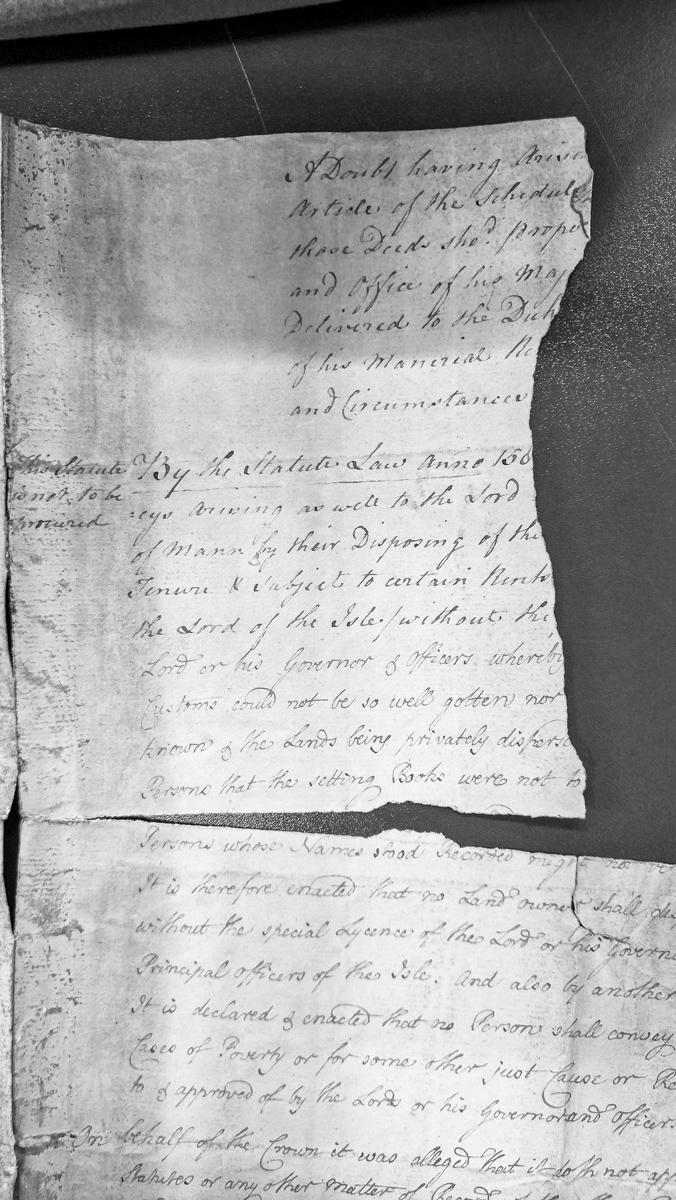 A Doubt having Arisen
Article of the Schedule
those Deeds sho.d prope
and Office of his Maj
Delivered to the Duk
of his Manerial Re
and Circumstances
This Statute
is not to be
procured
By the Statute Law Anno 15
:eys Arising as well to the Lord
of Mann by their Disposing of the
Tenure & subject to certain Rents
the Lord of the Isle/without the
Lord or his Governor & Officers whereby
Customs could not be so well gotten nor
known & the Lands being privately disperse
Persons that the setting Books were not to
Persons whose Names stood Recorded might not
It is therefore enacted that no Land owner shall dis
without the special Lycence of the Lord or his Govern
Principal officers of the Isle. And also by another
It is declared & enacted that no Person shall convey
Cases of Poverty or for some other just Cause or Re
to & approved of by the Lord or his Governor and officers
On behalf of the Crown it was alleged that it doth not app
Statutes or any other matter of Record of the